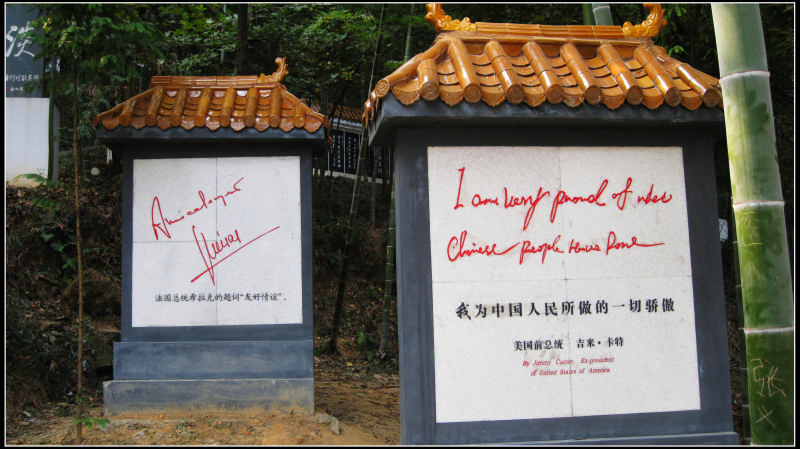 淡
Amicalement
法国总统希拉克的题词“友好情谊”.
I am very proud of what
Chinese people Have Done
我为中国人民所做的一切骄傲
美国前总统 吉米·卡特
By Jimmy Carter, Ex-president
of United States of America
张